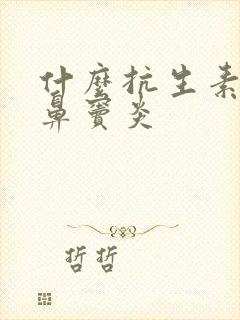 什麼抗生素
鼻竇炎
哲哲